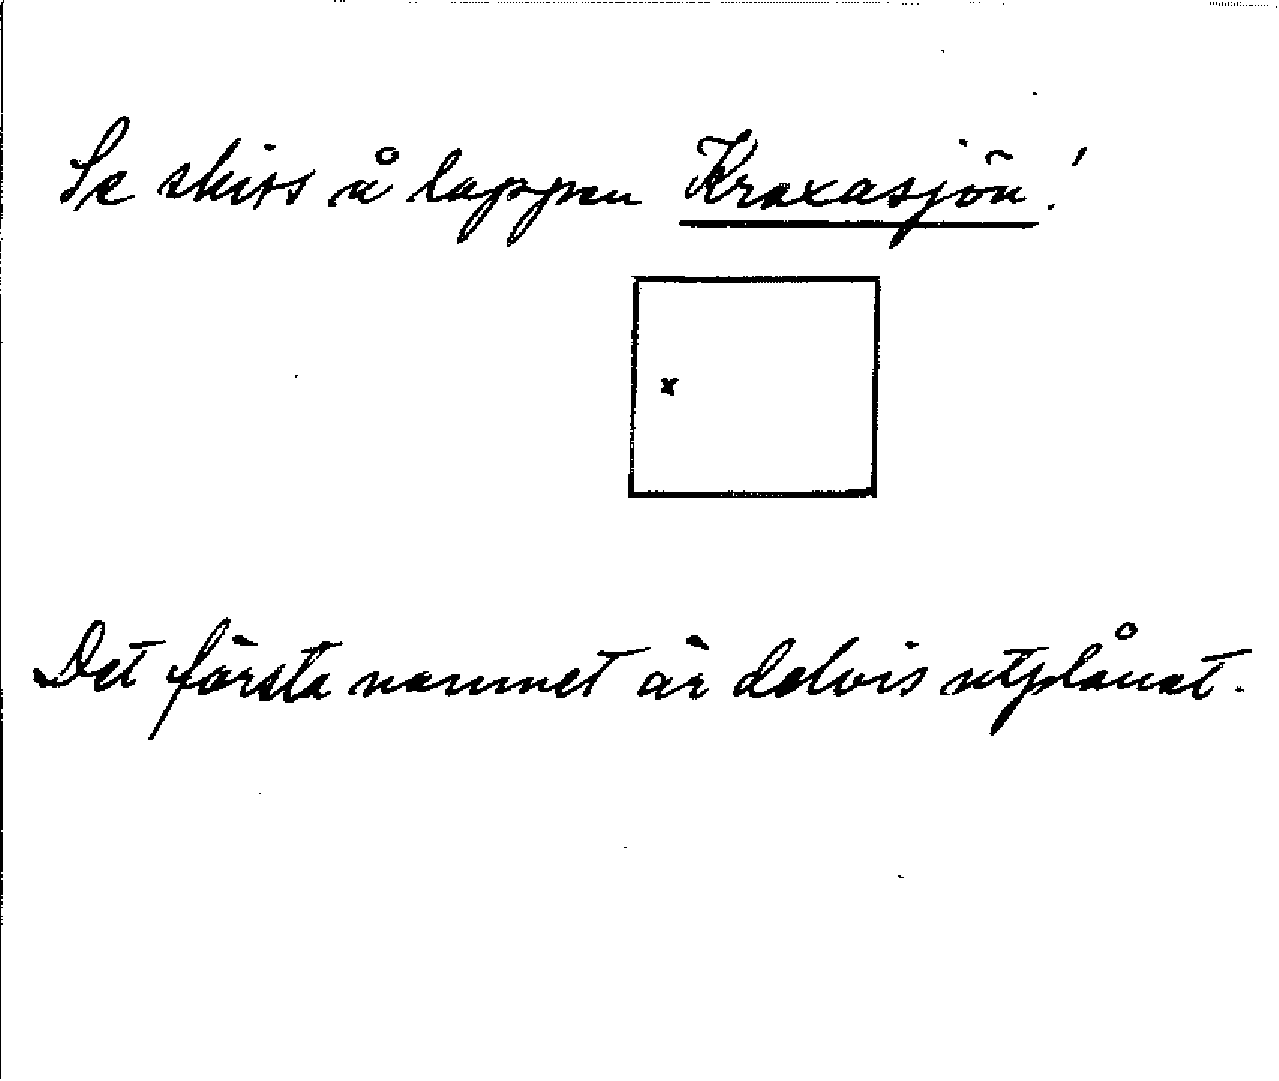 Se skiss å lappen Kraxasjön!
x
Det första namnet är delvis utplånat.